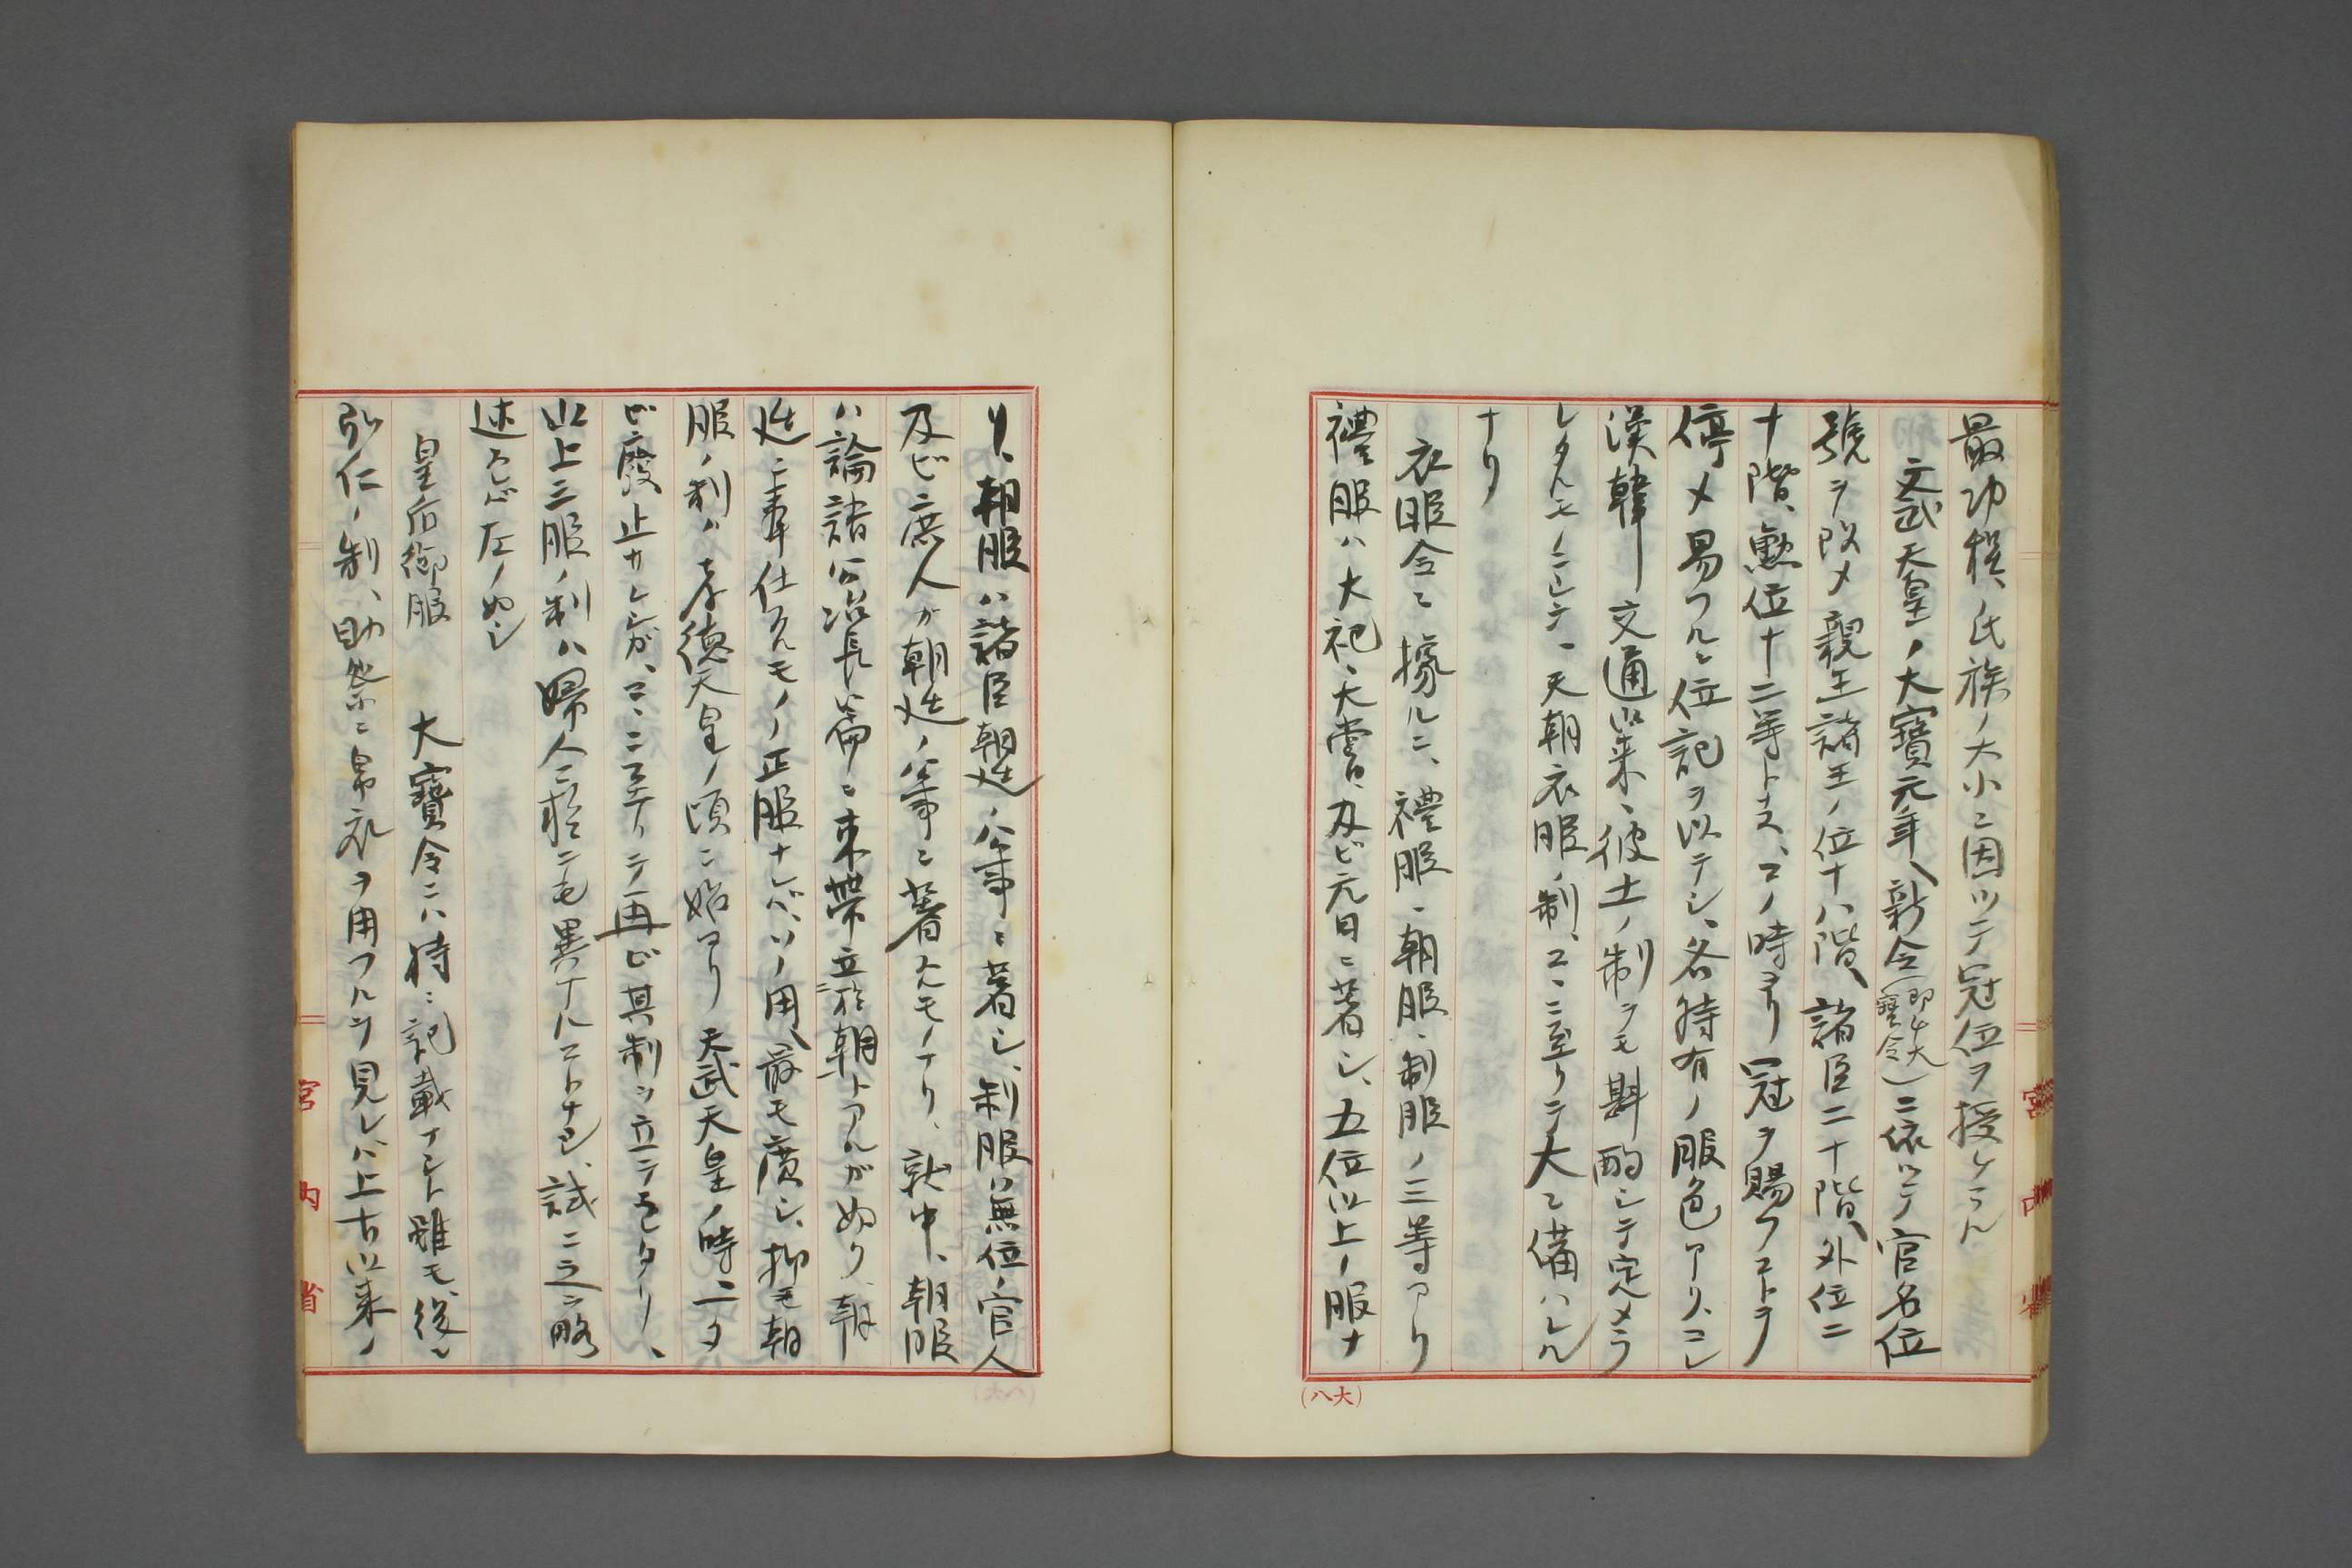 最功積、氏族ノ大小ニ因ツテ冠位ヲ授ケラル
文武天皇ノ大寶元年、新令(即チ大寶令)ニ依ツテ官名位
號ヲ改メ親王諸王ノ位十八階、諸臣二十階、外位二
十階、勲位十二等トス、コノ時ヨリ冠ヲ賜フコトヲ
停メ易フルニ位記ヲ以テシ、各特有ノ服色アリ、コレ
漢韓ト交通以来、彼土ノ制ヲモ斟酌シテ定メラ
レタルモノニシテ、天朝衣服ノ制、コヽニ至リテ大ニ備ハレル
ナリ
衣服令ニ據ルニ、禮服、朝服、制服ノ三等アリ
禮服ハ大祀、大嘗、及ビ元日ニ著シ、五位以上ノ服ナ
リ、朝服ハ諸臣朝廷ノ公事ニ著シ、制服ハ無位ノ官人
及ビ庶人ガ朝廷ノ公事ニ著スルモノナリ、就中、朝服
ハ論語公冶長篇ニ束帶立於朝トアルガ如ク、朝
廷ニ奉仕スルモノノ正服ナレバ、ソノ用、最モ廣シ、抑モ朝
服ノ制ハ孝德天皇ノ頃ニ始マリ天武天皇ノ時一タ
ビ廢止サレシガ、コヽニ至リテ再ビ其制ヲ立テラレタリ、
以上三服ノ制ハ婦人ニ於テモ異ナルコトナシ、試ニ之ヲ略
述スレバ左ノ如シ
皇后御服　大寶令ニハ特ニ記載ナシト雖モ、後ノ
弘仁ノ制、助祭ニ帛衣ヲ用フルヲ見レバ上古以来ノ
宮内省
宮内省
(八大)